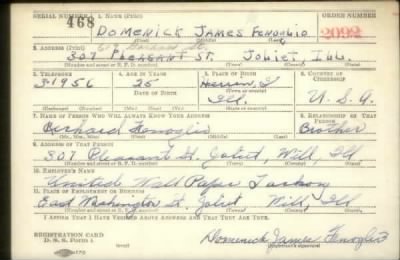 SERIAL NUMBER 1. NAME (Print) ORDER NUMBER
468 DOMENICK JAMES FENOGLIO 2092
(First) (Middle) (Last)
2. ADDRESS (Print)
307 PLEASANT ST. JOLIET ILL.
(Number and street or R. F. D. number) (Town) (County) (State)
3. TELEPHONE 4. AGE IN YEARS 5. PLACE OF BIRTH 6. COUNTRY OF CITIZENSHIP
31956 25 Herrin,
DATE OF BIRTH (Town or county)
Ill. U.S.A.
(Exchange) (Number) (Mo.) (Day) (Yr.) (State or country)
7. NAME OF PERSON WHO WILL ALWAYS KNOW YOUR ADDRESS 8. RELATIONSHIP OF THAT PERSON
Fenoglio Brother
(Mr., Mrs., Miss) (First) (Middle) (Last)
9. ADDRESS OF THAT PERSON
307 Pleasant St. Joliet, Will, Ill
(Number and street or R. F. D. number) (Town) (County) (State)
10. EMPLOYER'S NAME
United Wall Paper Factory
11. PLACE OF EMPLOYMENT OR BUSINESS
East Washington St. Joliet Will, Ill
(Number and street or R. F. D. number) (Town) (County) (State)
I AFFIRM THAT I HAVE VERIFIED ABOVE ANSWERS AND THAT THEY ARE TRUE.
REGISTRATION CARD
D. S. S. Form 1 Domenick James Fenoglio
(Registrant's signature)